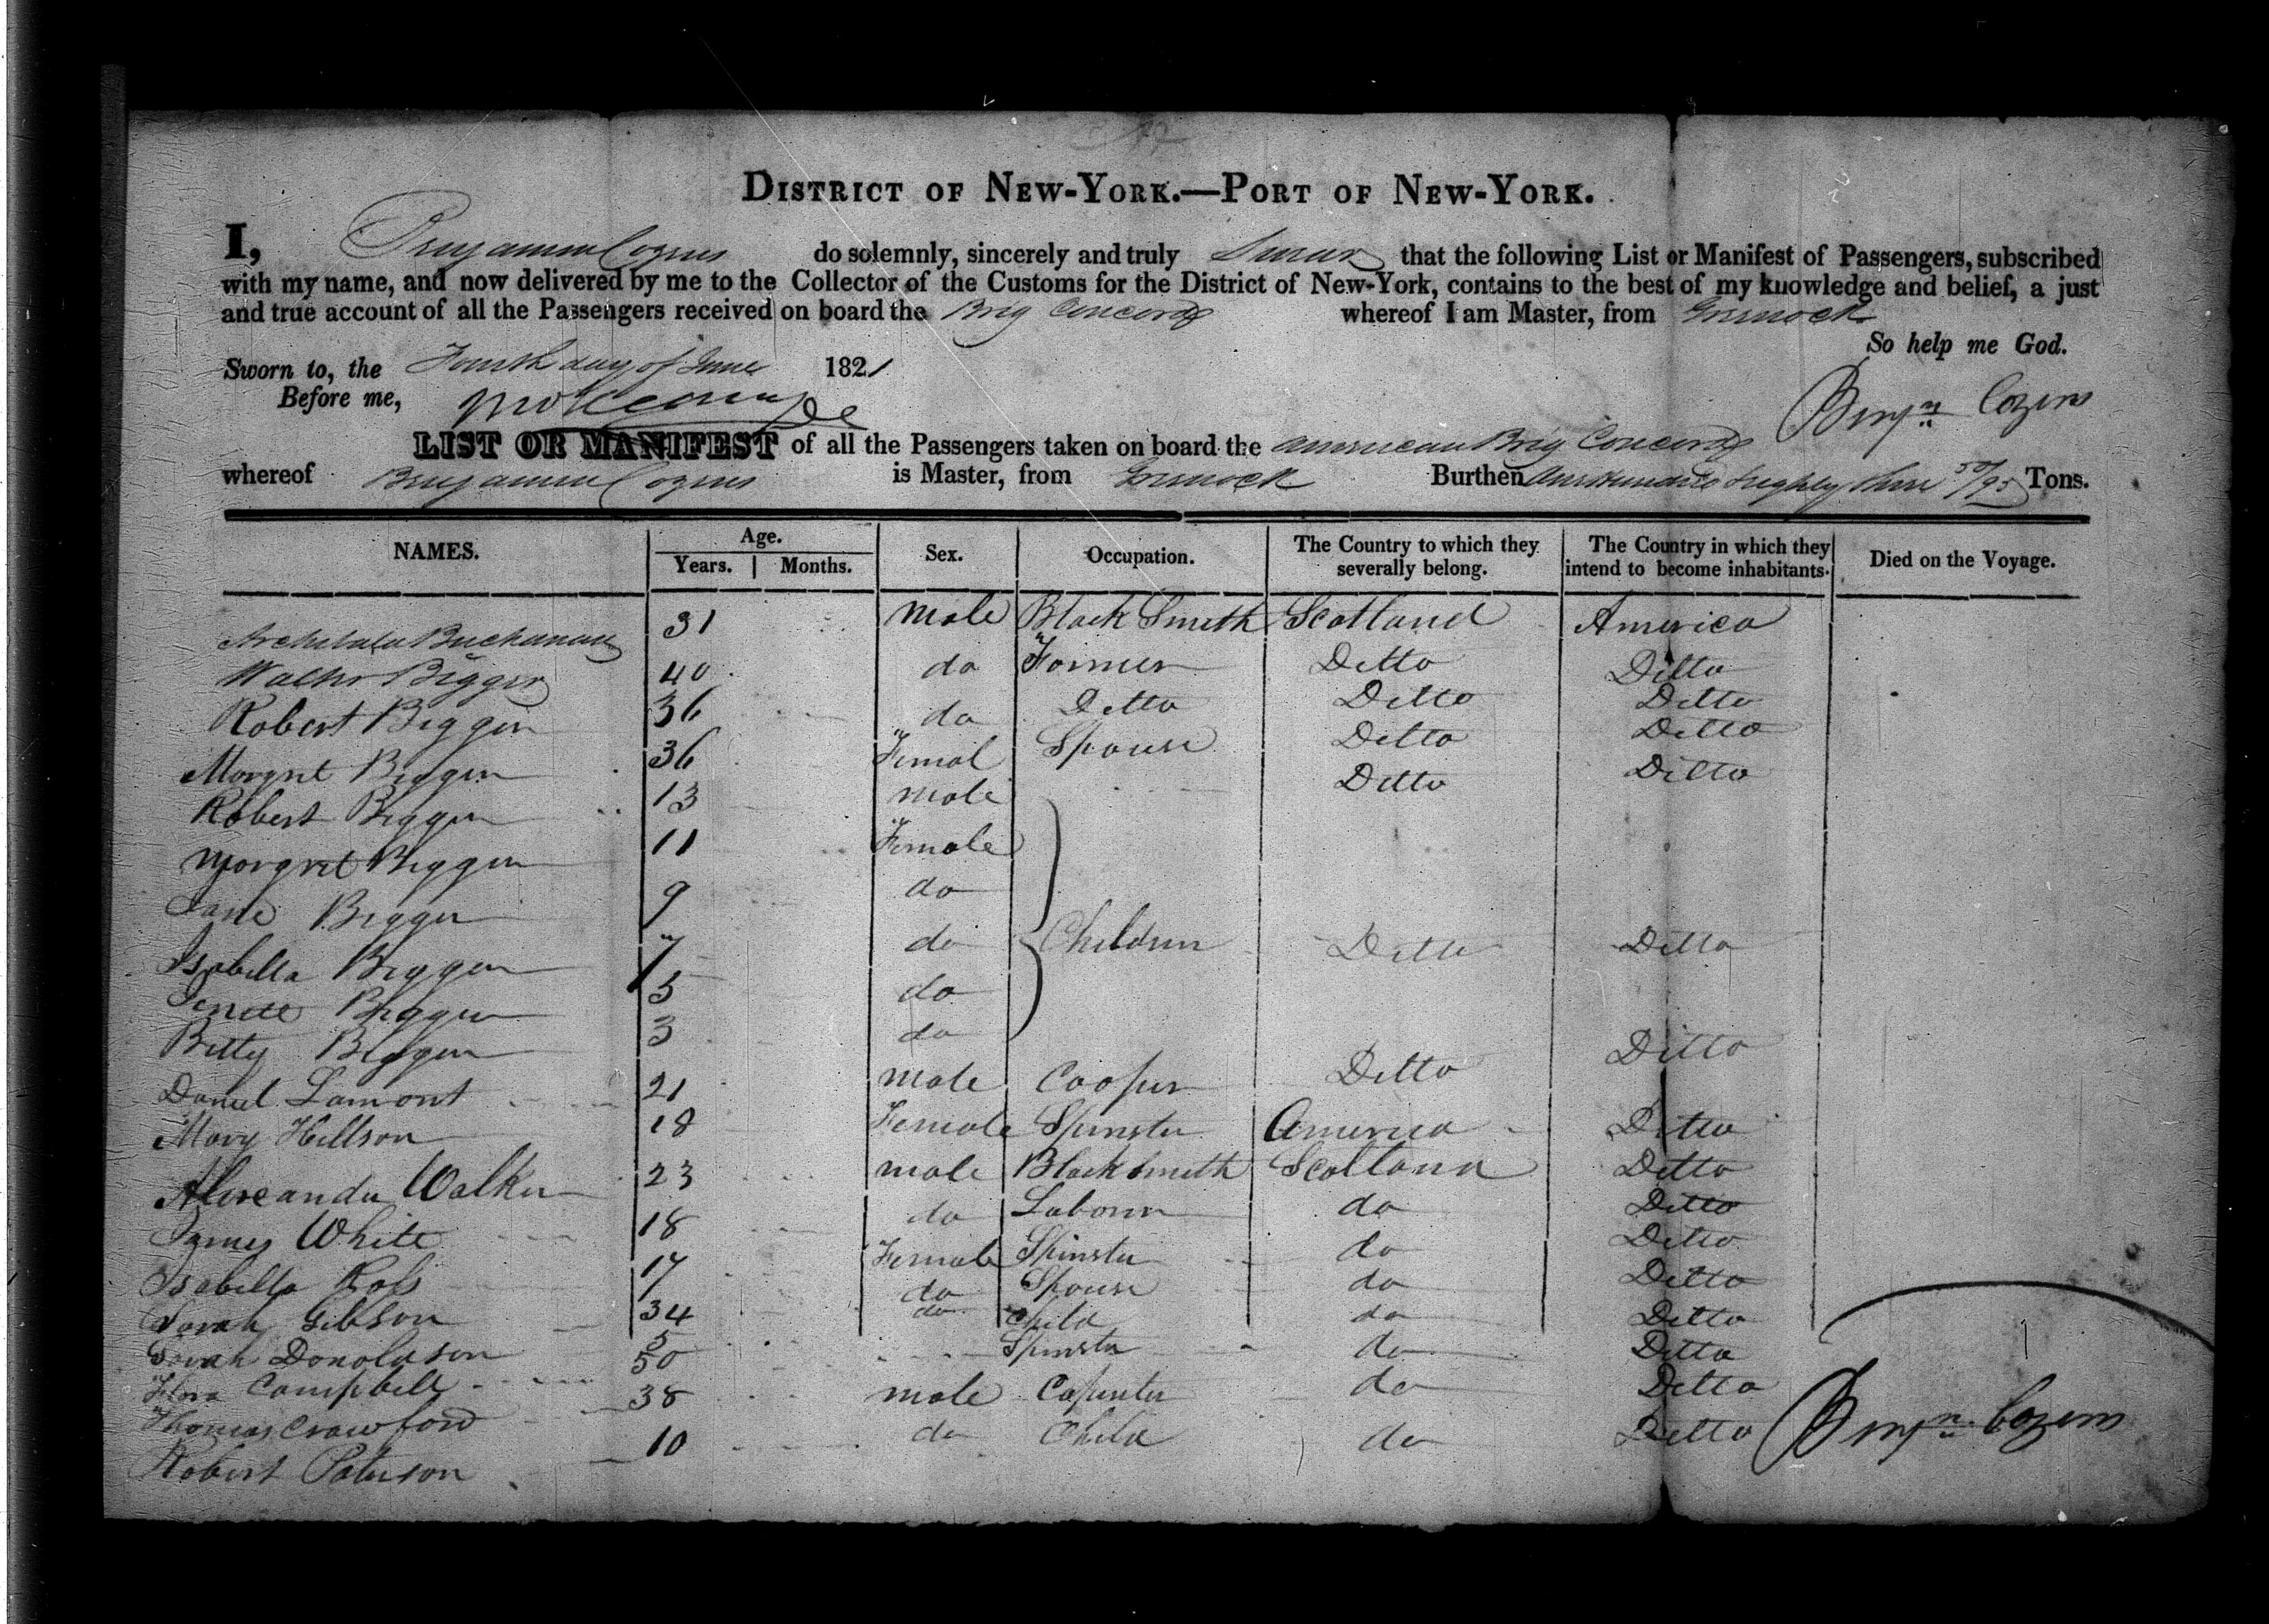 DISTRICT OF NEW-YORK.—PORT OF NEW-YORK.
I, Benjamin Cozens do solemnly, sincerely and truly Swear that the following List or Manifest of Passengers, subscribed
with my name, and now delivered by me to the Collector of the Customs for the District of New-York, contains to the best of my knowledge and belief, a just
and true account of all the Passengers received on board the Brig Concord whereof I am Master, from Greenock
So help me God.
Sworn to, the Fourth day of June 1821
Before me,
Benjn Cozens
LIST OR MANIFEST of all the Passengers taken on board the American Brig Concord
whereof Benjamin Cozens is Master, from Greenock Burthen One Hundred & Eighty three 50/95 Tons.
NAMES. Age. Years. Months. Sex. Occupation. The Country to which they severally belong. The Country in which they intend to become inhabitants. Died on the Voyage.
Archibald Buchanan 31 male Black Smith Scotland America
Walter Bigger 40 do Farmer Ditto Ditto
Robert Bigger 36 do Ditto Ditto Ditto
Margret Bigger 36 Femal Spouse Ditto Ditto
Robert Bigger 13 male Ditto Ditto
Margret Bigger 11 Female
Jane Bigger 9 do
Isabella Bigger 7 do Children Ditto Ditto
Jenett Bigger 5 do
Betty Bigger 3 do
Daniel Lamont 21 male Cooper Ditto Ditto
Mary Hillson 18 Female Spinster America Ditto
Alexander Walker 23 male Blacksmith Scotland Ditto
James White 18 do Laborer do Ditto
Isabella Ross 17 Female Spinster do Ditto
Sarah Gibson 34 do Spouse do Ditto
Sarah Donaldson 5 do Child do Ditto
Flora Campbell 50 Spinster do Ditto
Thomas Crawford 38 male Capenter do Ditto
Robert Paterson 10 do Child do Ditto
Benjn Cozens